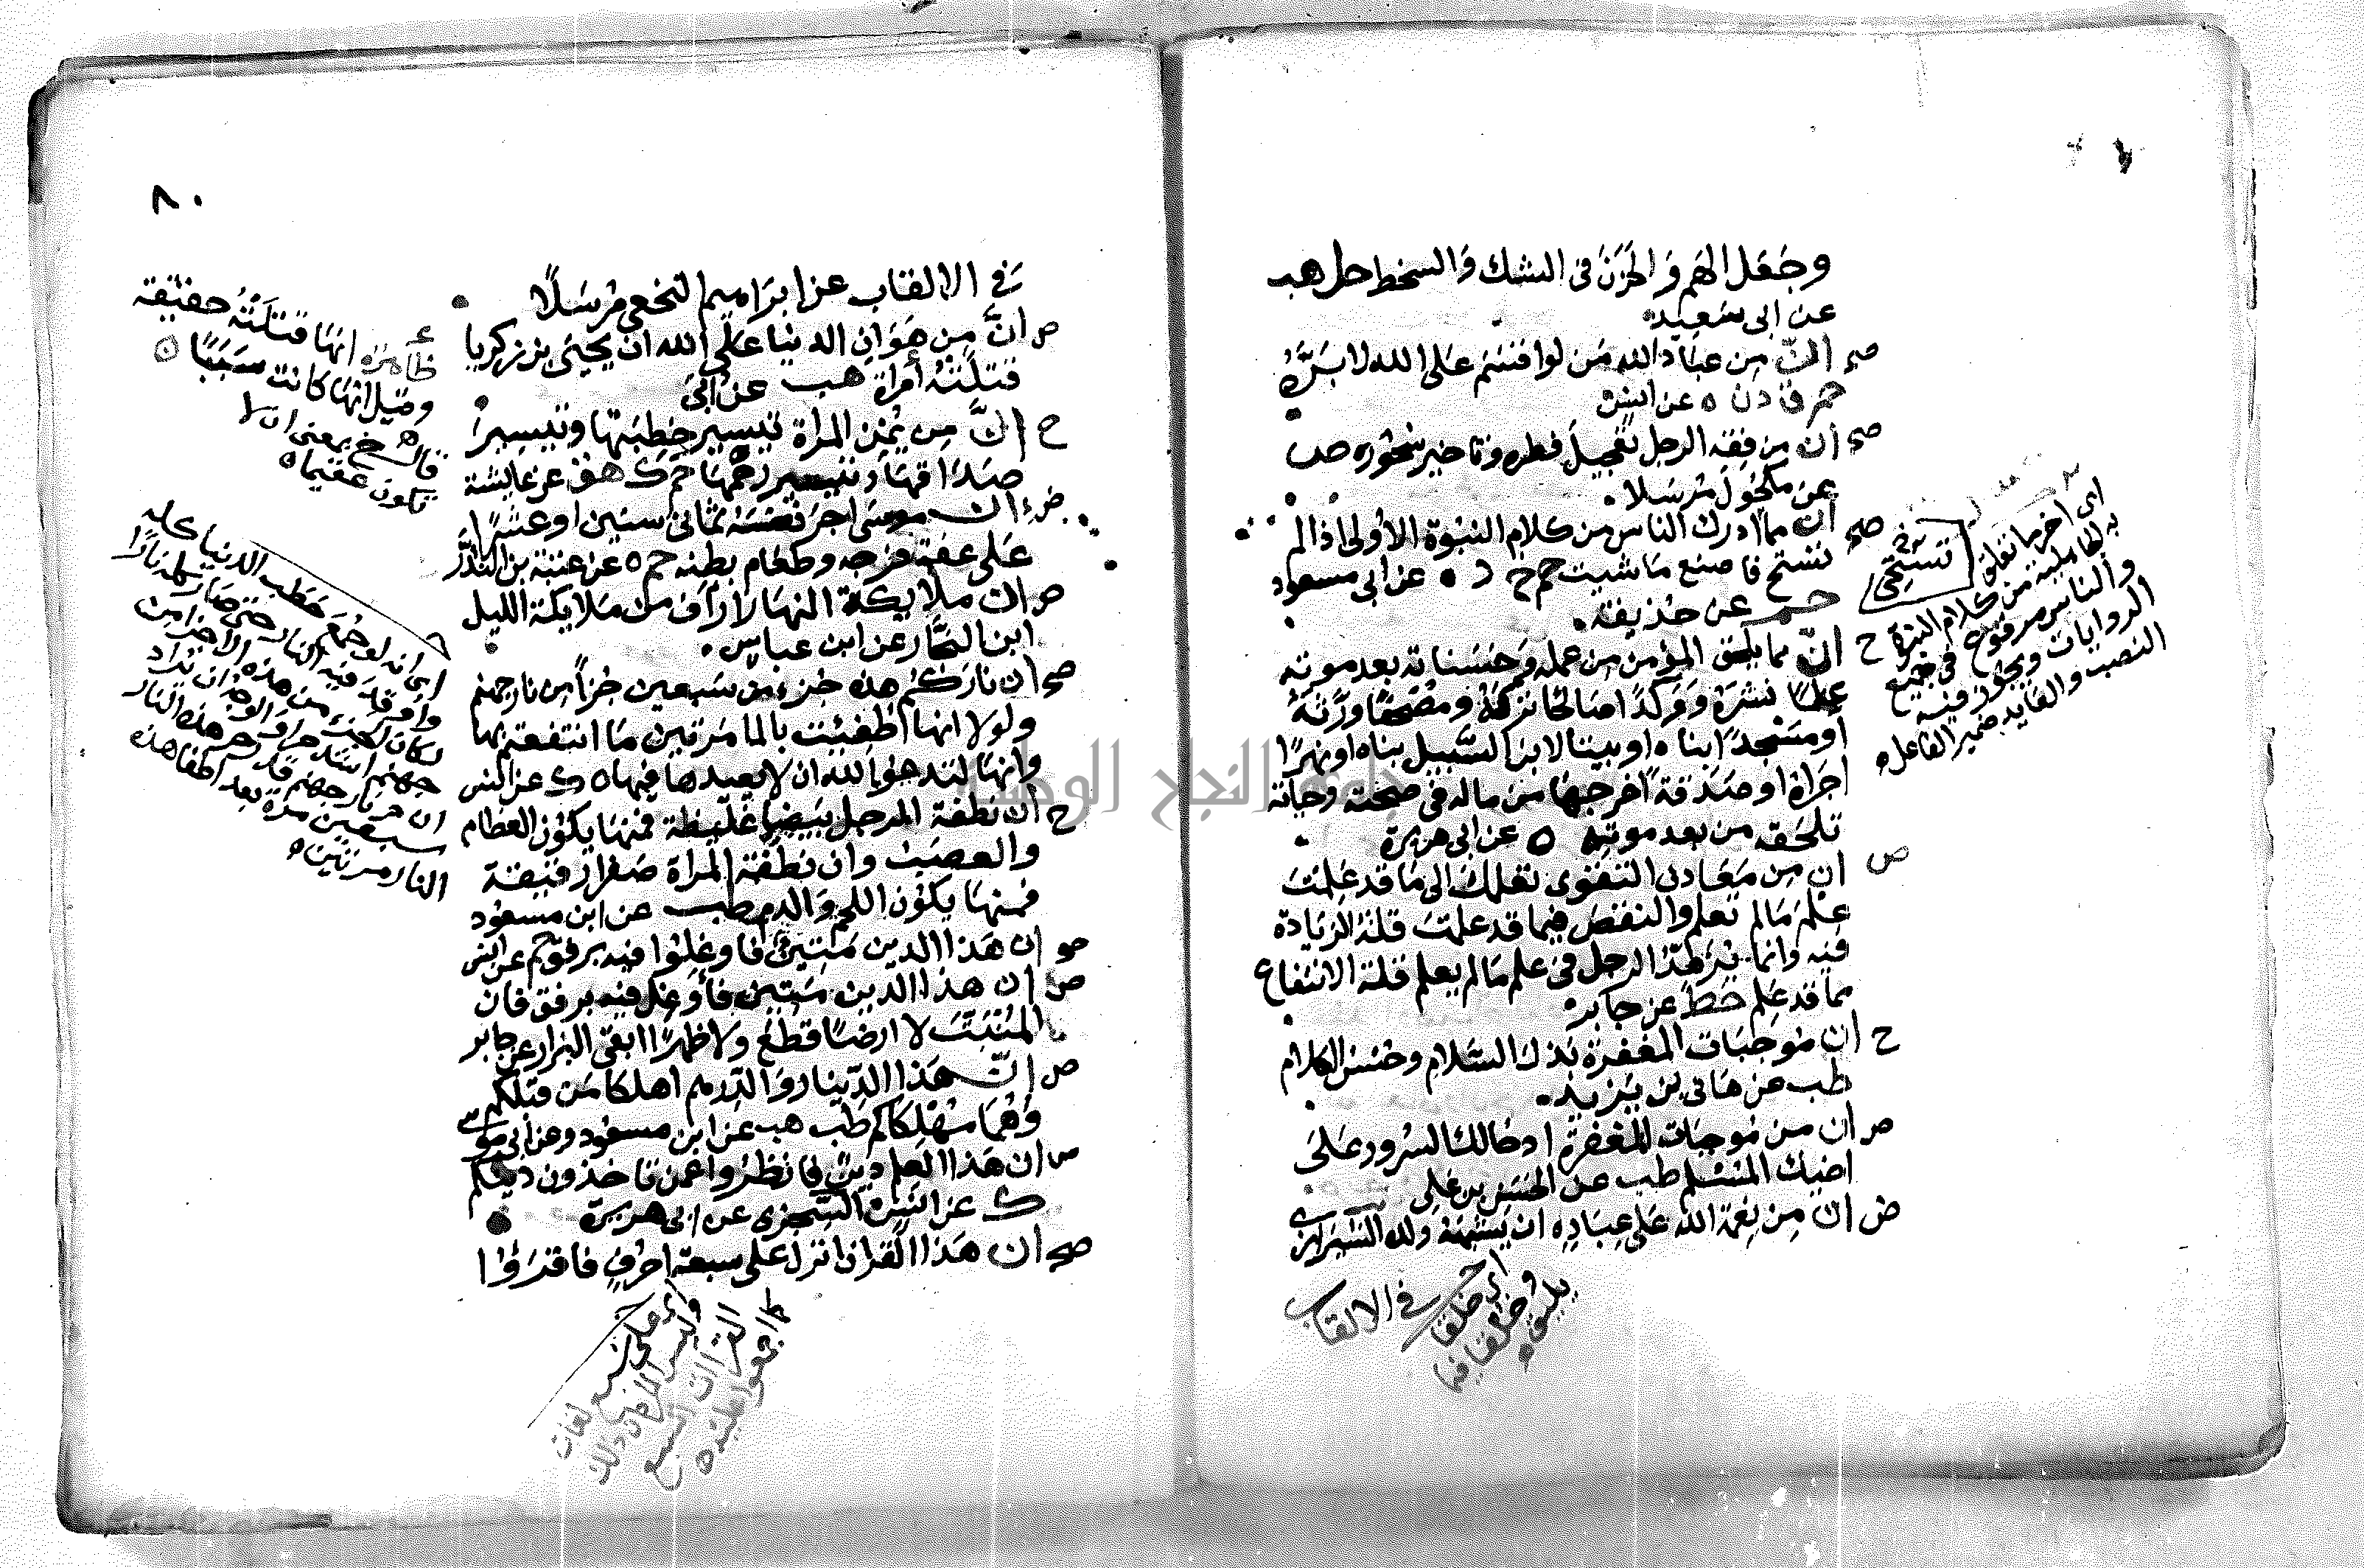 وجعل الهم والحزن في الشك والسخط حل هب
عن ابي سعيد
صح ان من عباد الله من لو اقسم على الله لابره
حم ق د ن ه عن انس
صح ان من فقه الرجل تعجيل فطره وتاخير سحوره ص
عن مكحول مرسلا
صح ان مما ادرك الناس من كلام النبوة الاولى اذا لم
تستح فاصنع ما شيت حم خ د ه عن ابي مسعود
حم عن حذيفة
ح ان مما يلحق المؤمن من عمله وحسناته بعد موته
علما نشره وولدا صالحا تركه ومصحفا ورثه
او مسجدا بناه او بيتا لابن السبيل بناه او نهرا
اجراه او صدقة اخرجها من ماله في صحته وحياته
تلحقه من بعد موته ه عن ابي هريرة
ض ان من معادن التقوى تعلمك الى ما قد علمت
علم ما لم تعلم والنقص فيما قد علمت قلة الزيادة
فيه وانما يزهد الرجل في علم ما لم يعلم قلة الانتفاع
بما قد علم خط عن جابر
ح ان موجبات المغفرة بذل السلام وحسن الكلام
طب عن هاني بن يزيد
ض ان من موجبات المغفرة ادخالك السرور على
اخيك المسلم طب عن الحسن بن علي
ض ان من نعمة الله على عباده ان يشبهه ولده الشيرازي
في الالقاب
اي خلقا
وخلقا فيما
يليق
تستحي
اي اخر ما تعلق
به الجاهلية من كلام النبوة
والناس مرفوع في جميع
الروايات ويجوز فيه
النصب والعايد ضمير الفاعل
٨٠
في الالقاب عن ابراهيم النخعي مرسلا
ض ان من هوان الدنيا على الله ان يحيى بن زكريا
قتلته امراة هب عن ابي
ح ان من يمن المراة تيسير خطبتها وتيسير
صداقها وتيسير رحمها حم ك هق عن عايشة
ض ان موسى اجر نفسه ثماني سنين او عشرا
على عفة فرجه وطعام بطنه حم ه عن عتبة بن الندر
ض ان ملايكة النهار اراف من ملايكة الليل
ابن النجار عن ابن عباس
صح ان ناركم هذه جزء من سبعين جزا من نار جهنم
ولولا انها اطفيت بالما مرتين ما انتفعتم بها
وانها لتدعو الله ان لا يعيدها فيها ه ك عن انس
ح ان نطفة الرجل بيضا غليظة فمنها يكون العظام
والعصب وان نطفة المراة صفرا رقيقة
فمنها يكون اللحم والدم طب عن ابن مسعود
صح ان هذا الدين متين فاوغلوا فيه برفق حم عن انس
ض ان هذا الدين متين فاوغل فيه برفق فان
المنبت لا ارضا قطع ولا ظهرا ابقى البزار عن جابر
ض ان هذا الدينار والدرهم اهلكا من قبلكم
وهما مهلكاكم طب هب عن ابن مسعود وعن ابي موسى
ض ان هذا العلم دين فانظروا عمن تاخذون دينكم
ك عن انس السجزي عن ابي هريرة
صح ان هذا القران انزل على سبعة احرف فاقرؤوا
ظاهره انها قتلته حقيقة
وقيل انها كانت سببا ه
قال خ يعني ان لا
تكون عقيما ه
اي انه لو جمع حطب الدنيا كله
واوقد فيه النار حتى صار كله نارا
لكان الجزء من هذه الاجزا من
جهنم اشد حرا والوجه ان نزاد
ان حر نار جهنم قدر حر هذه النار
سبعين مرة بعد اطفا هذه
النار مرتين ه